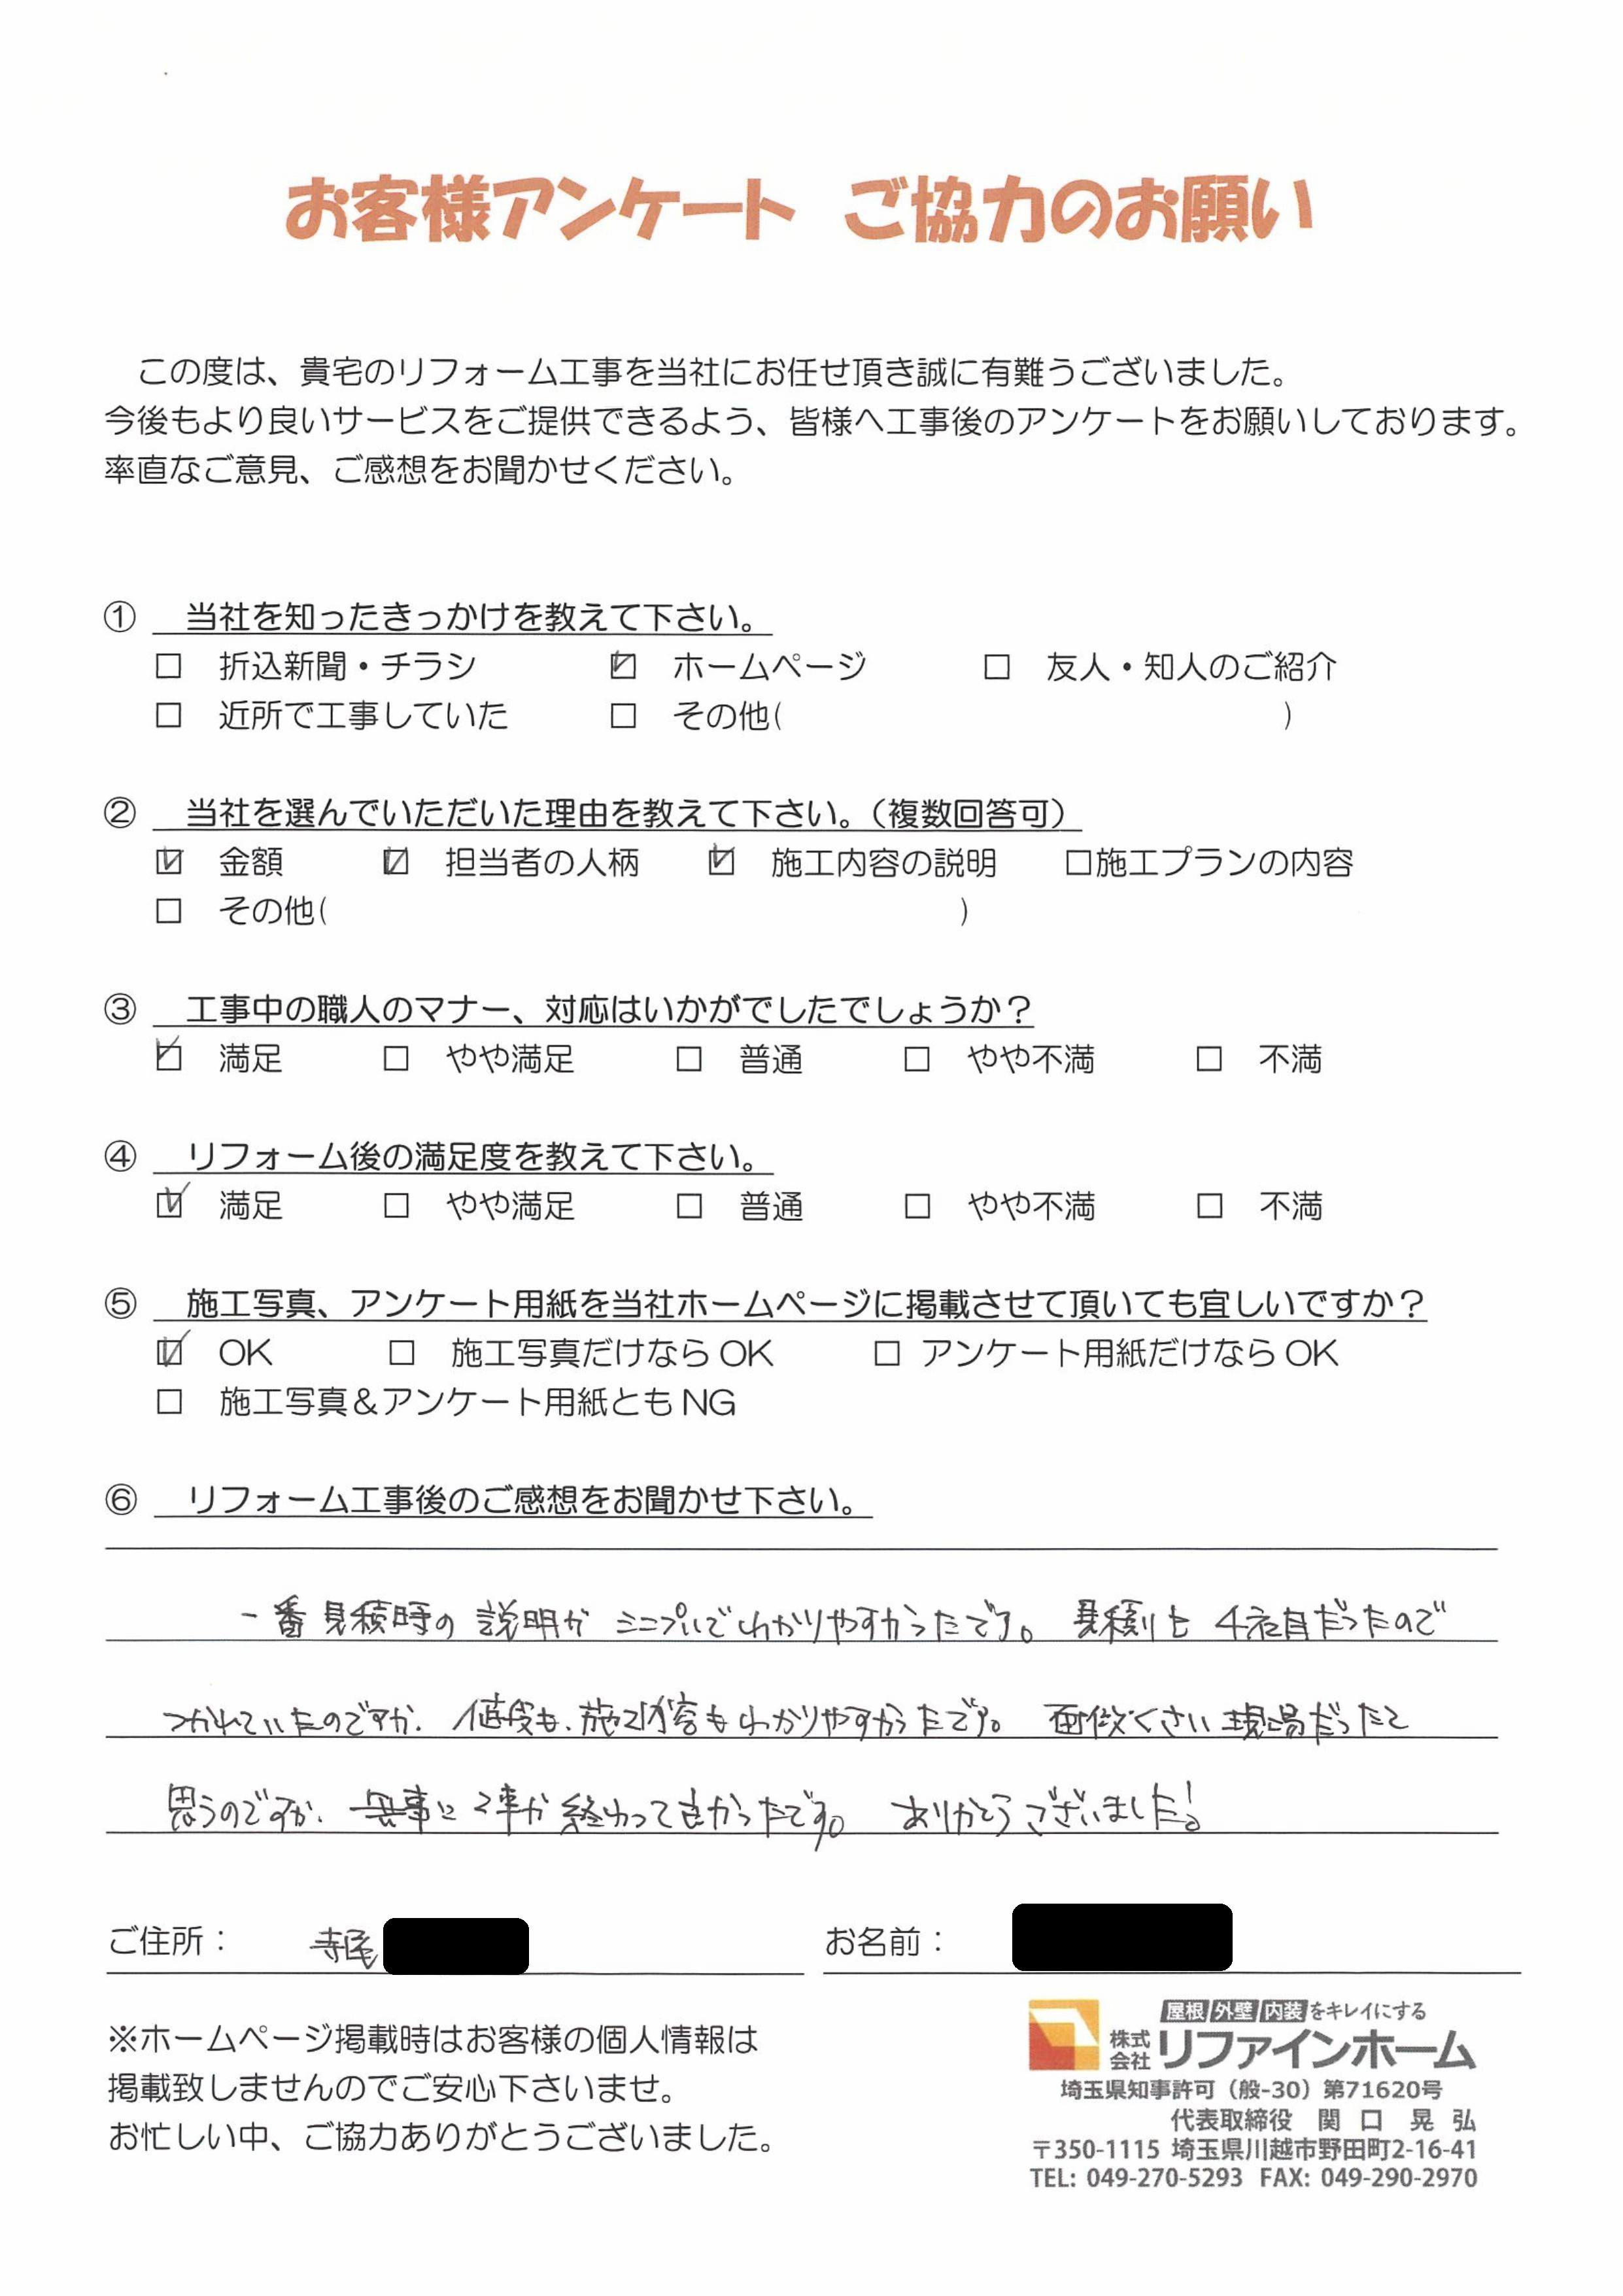 お客様アンケート ご協力のお願い
この度は、貴宅のリフォーム工事を当社にお任せ頂き誠に有難うございました。
今後もより良いサービスをご提供できるよう、皆様へ工事後のアンケートをお願いしております。
率直なご意見、ご感想をお聞かせください。
① 当社を知ったきっかけを教えて下さい。
□ 折込新聞・チラシ ☑ ホームページ □ 友人・知人のご紹介
□ 近所で工事していた □ その他( )
② 当社を選んでいただいた理由を教えて下さい。(複数回答可)
☑ 金額 ☑ 担当者の人柄 ☑ 施工内容の説明 □施工プランの内容
□ その他( )
③ 工事中の職人のマナー、対応はいかがでしたでしょうか？
☑ 満足 □ やや満足 □ 普通 □ やや不満 □ 不満
④ リフォーム後の満足度を教えて下さい。
☑ 満足 □ やや満足 □ 普通 □ やや不満 □ 不満
⑤ 施工写真、アンケート用紙を当社ホームページに掲載させて頂いても宜しいですか？
☑ OK □ 施工写真だけなら OK □ アンケート用紙だけなら OK
□ 施工写真＆アンケート用紙とも NG
⑥ リフォーム工事後のご感想をお聞かせ下さい。
一番見積時の説明が シンプルでわかりやすかったです。見積りも 4社目だったので
つかれていたのですが、値段も、施工内容もわかりやすかったです。面倒くさい現場だったと
思うのですが、無事に工事が終わって良かったです。ありがとうございました!
ご住所： 寺尾 お名前：
※ホームページ掲載時はお客様の個人情報は
掲載致しませんのでご安心下さいませ。
お忙しい中、ご協力ありがとうございました。
屋根 外壁 内装 をキレイにする
株式会社 リファインホーム
埼玉県知事許可（般-30）第71620号
代表取締役 関口 晃弘
〒350-1115 埼玉県川越市野田町2-16-41
TEL: 049-270-5293 FAX: 049-290-2970